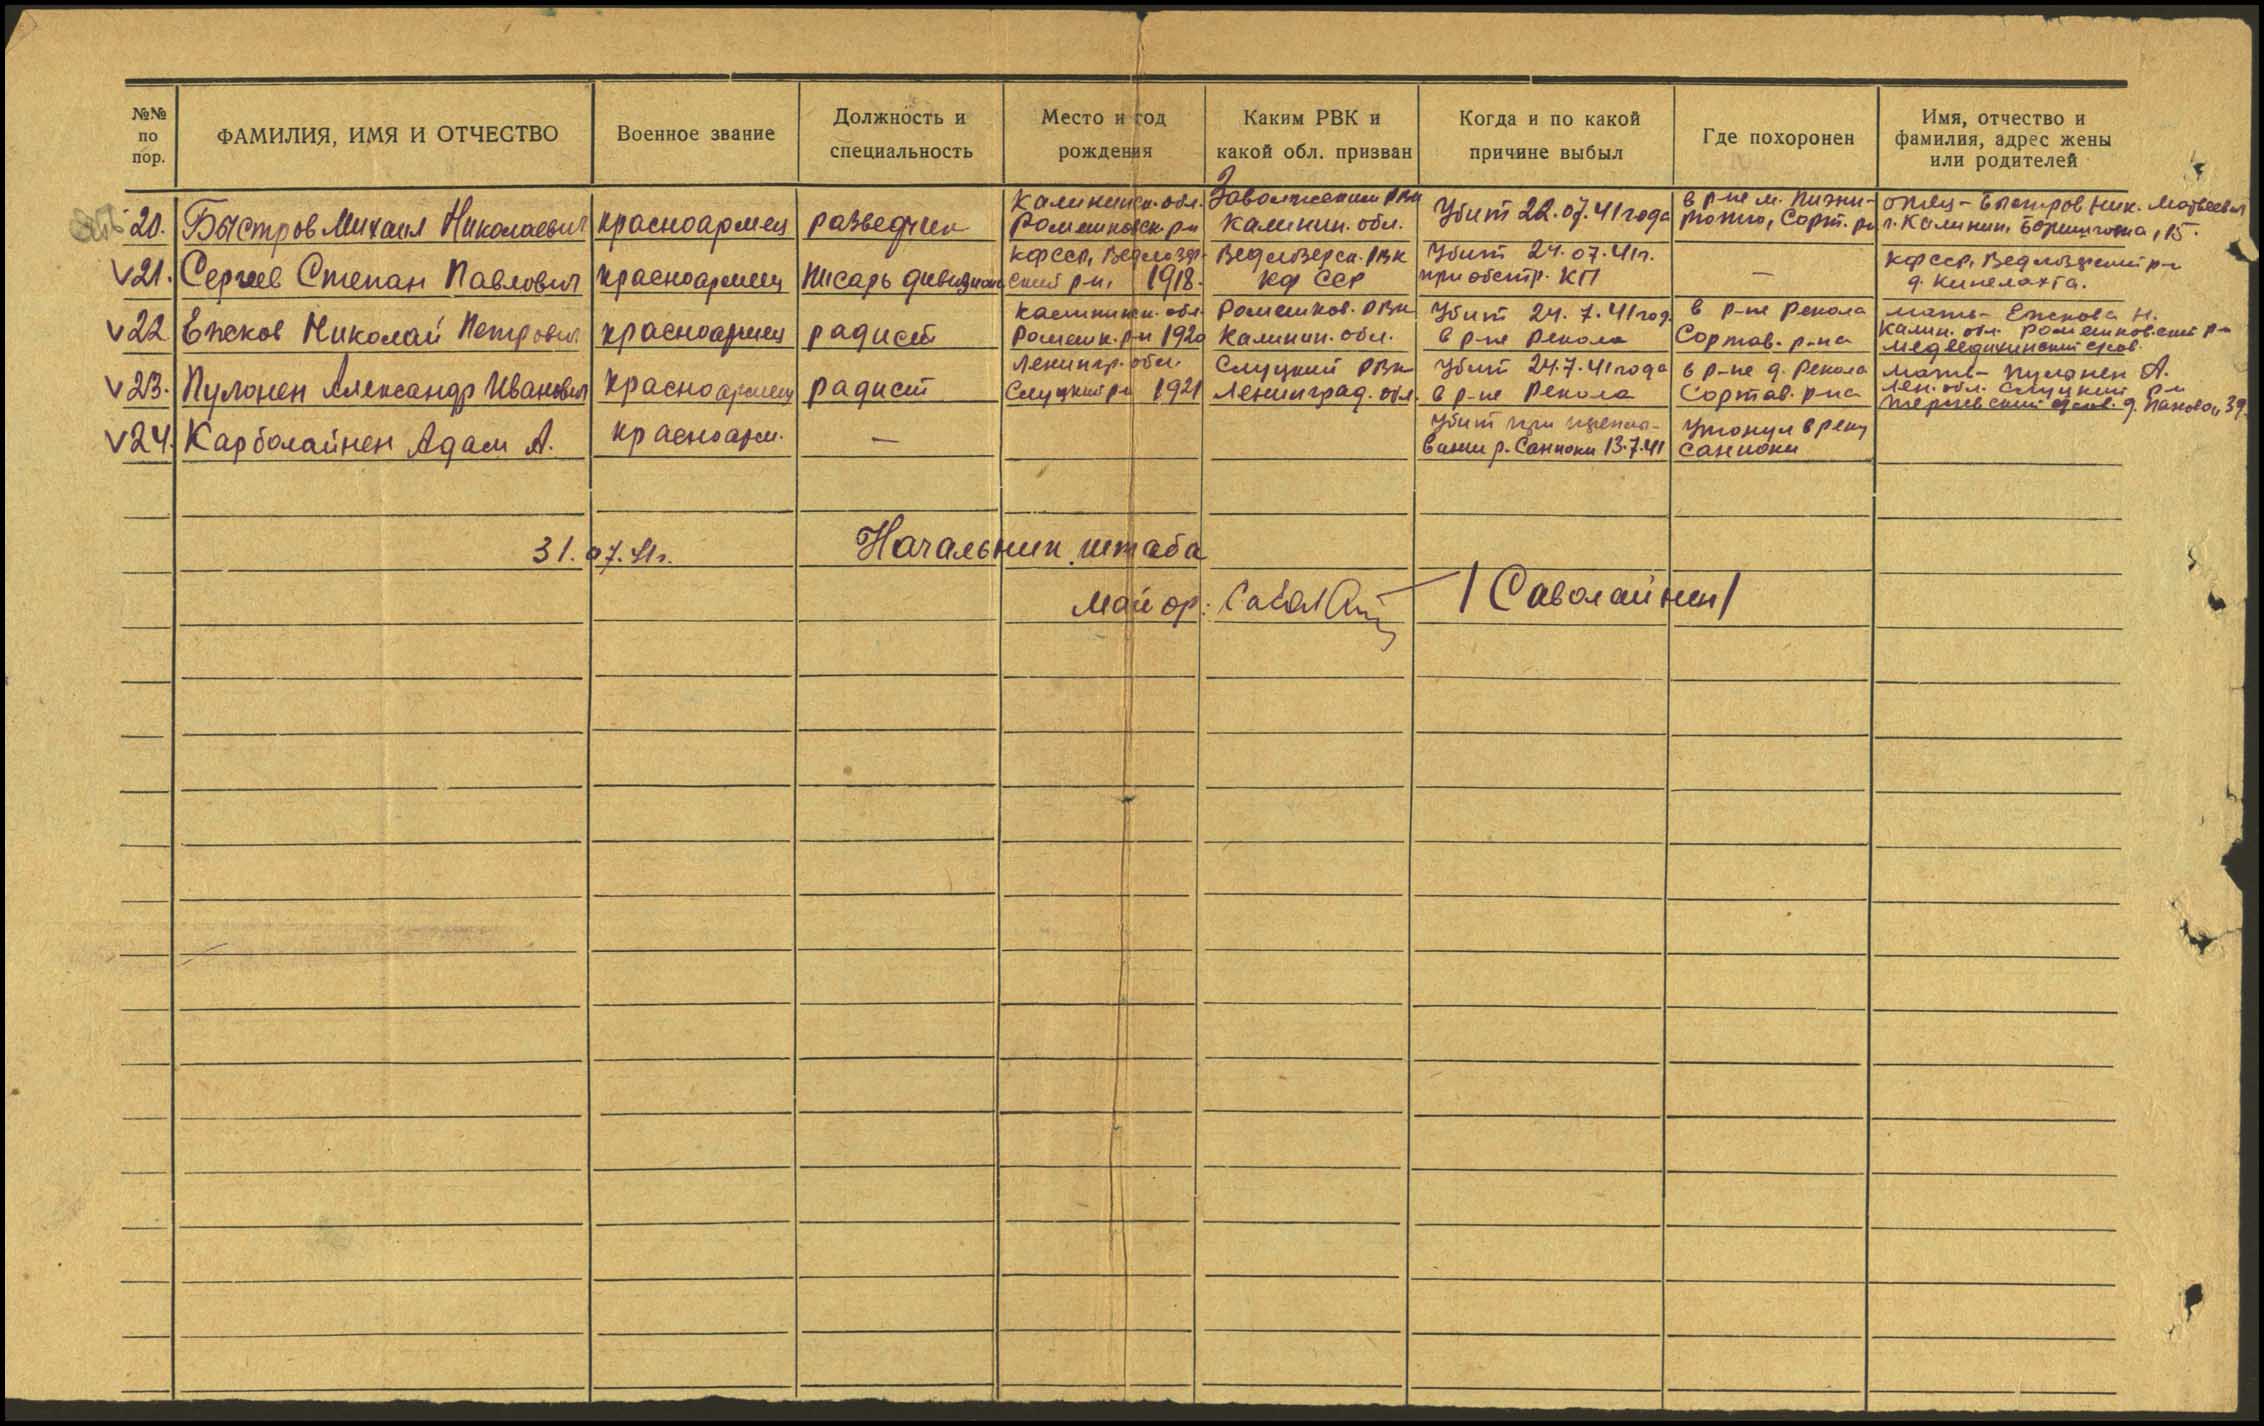 №№ по пор.
ФАМИЛИЯ, ИМЯ И ОТЧЕСТВО
Военное звание
Должность и специальность
Место и год рождения
Каким РВК и какой обл. призван
Когда и по какой причине выбыл
Где похоронен
Имя, отчество и фамилия, адрес жены или родителей
20.
Быстров Михаил Николаевич
красноармец
разведчик
Калининск. обл.
Рамешковск. р-н
Заволжским РВК
Калинин. обл.
Убит 22.07.41 года
в р-не м.
Сорт. р-н
отец - Быстров Ник. Матвеевич
г. Калинин, 15.
V 21.
Сергеев Степан Павлович
красноармец
писарь дивизиона
КФССР, Ведлозер-
ский р-н, 1918.
Ведлозерск. РВК
КФ ССР
Убит 24.07.41г.
при обстр. КП
—
КФССР, Ведлозерский р-н
д. Кинелахта.
V 22
Ежков Николай Петрович
красноармец
радист
Калининск. обл.
Рамешк. р-н 1920
Рамешков. РВК
Калинин. обл.
Убит 24.7.41 год.
в р-не Рекола
в р-не Рекола
Сортав. р-на
мать - Ежкова Н.
Калин. обл. Рамешковский р-н
Медведихинский с/сов.
V 23.
Пулонен Александр Иванович
красноармец
радист
Ленингр. обл.
Слуцкий р-н 1921
Слуцкий РВК
Ленинград. обл.
Убит 24.7.41 года
в р-не Рекола
в р-не д. Рекола
Сортав. р-на
мать - Пулонен А.
Лен. обл. Слуцкий р-н
с/сов. д. 39.
V 24.
Карболайнен Адам А.
красноарм.
—
Убит при
р. 13.7.41
Утонул в реку
31.07.41г.
Начальник штаба
Майор:
/Саволайнен/